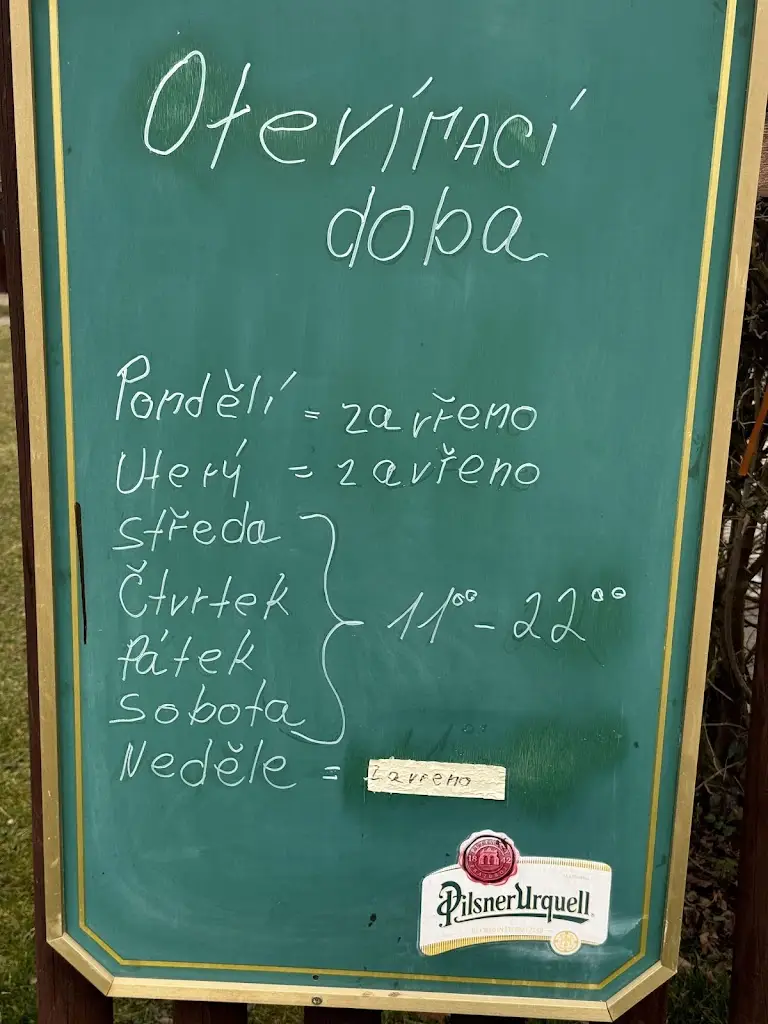 Otevírací
doba
Pondělí = zavřeno
Úterý = zavřeno
středa
Čtvrtek
Pátek
sobota
11⁰⁰ - 22⁰⁰
Neděle = Zavřeno
1842
Pilsner Urquell